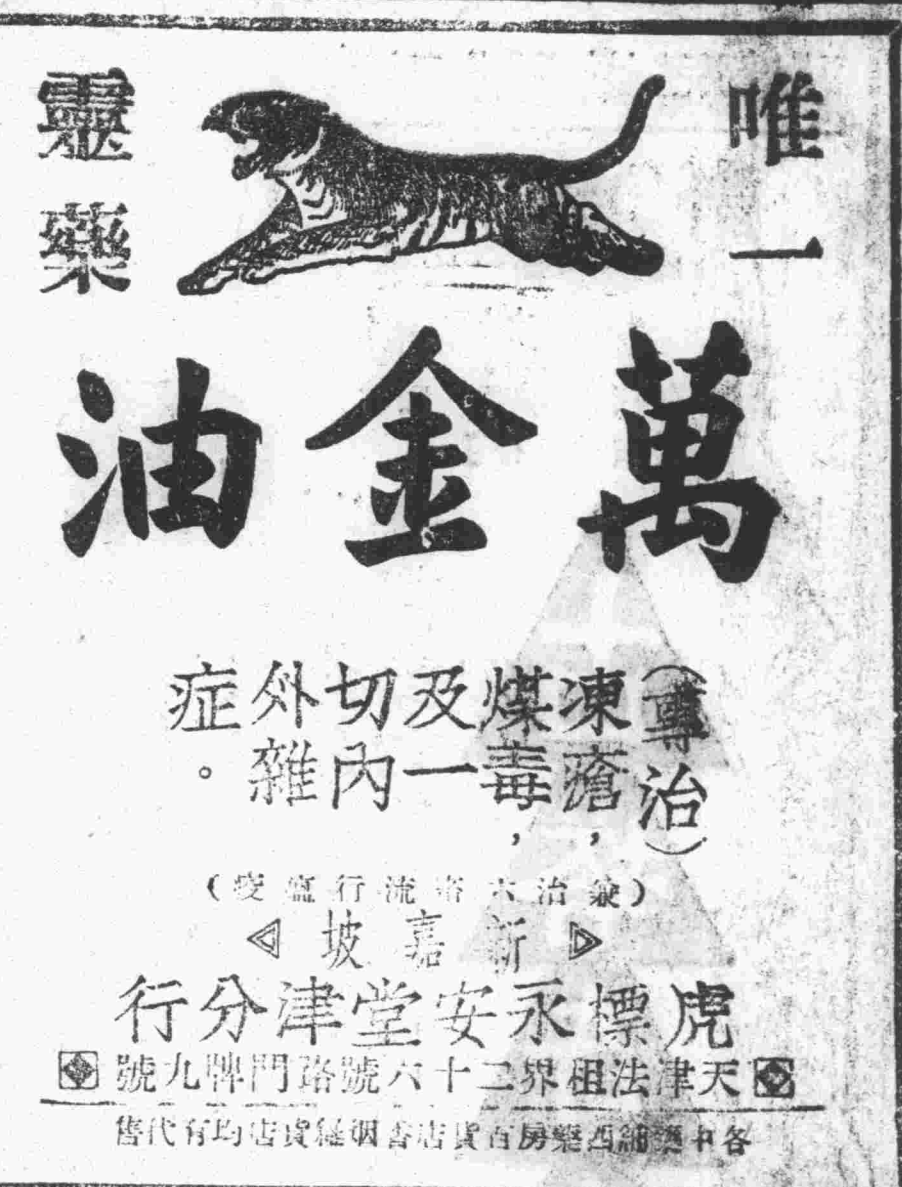 唯一
靈藥
萬金油
(專治)
凍瘡,
煤毒,
及一
切內
外雜
症。
(兼治流行瘟疫)
新嘉坡
虎標永安堂津分行
天津法租界二十六號路門牌九號
各中藥鋪西藥房百貨店香烟貨店均有代售